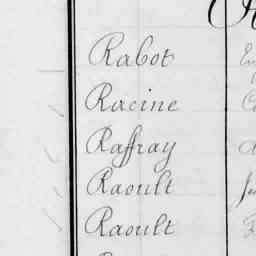 Rabot
Racine
Raffray
Raoult
Raoult